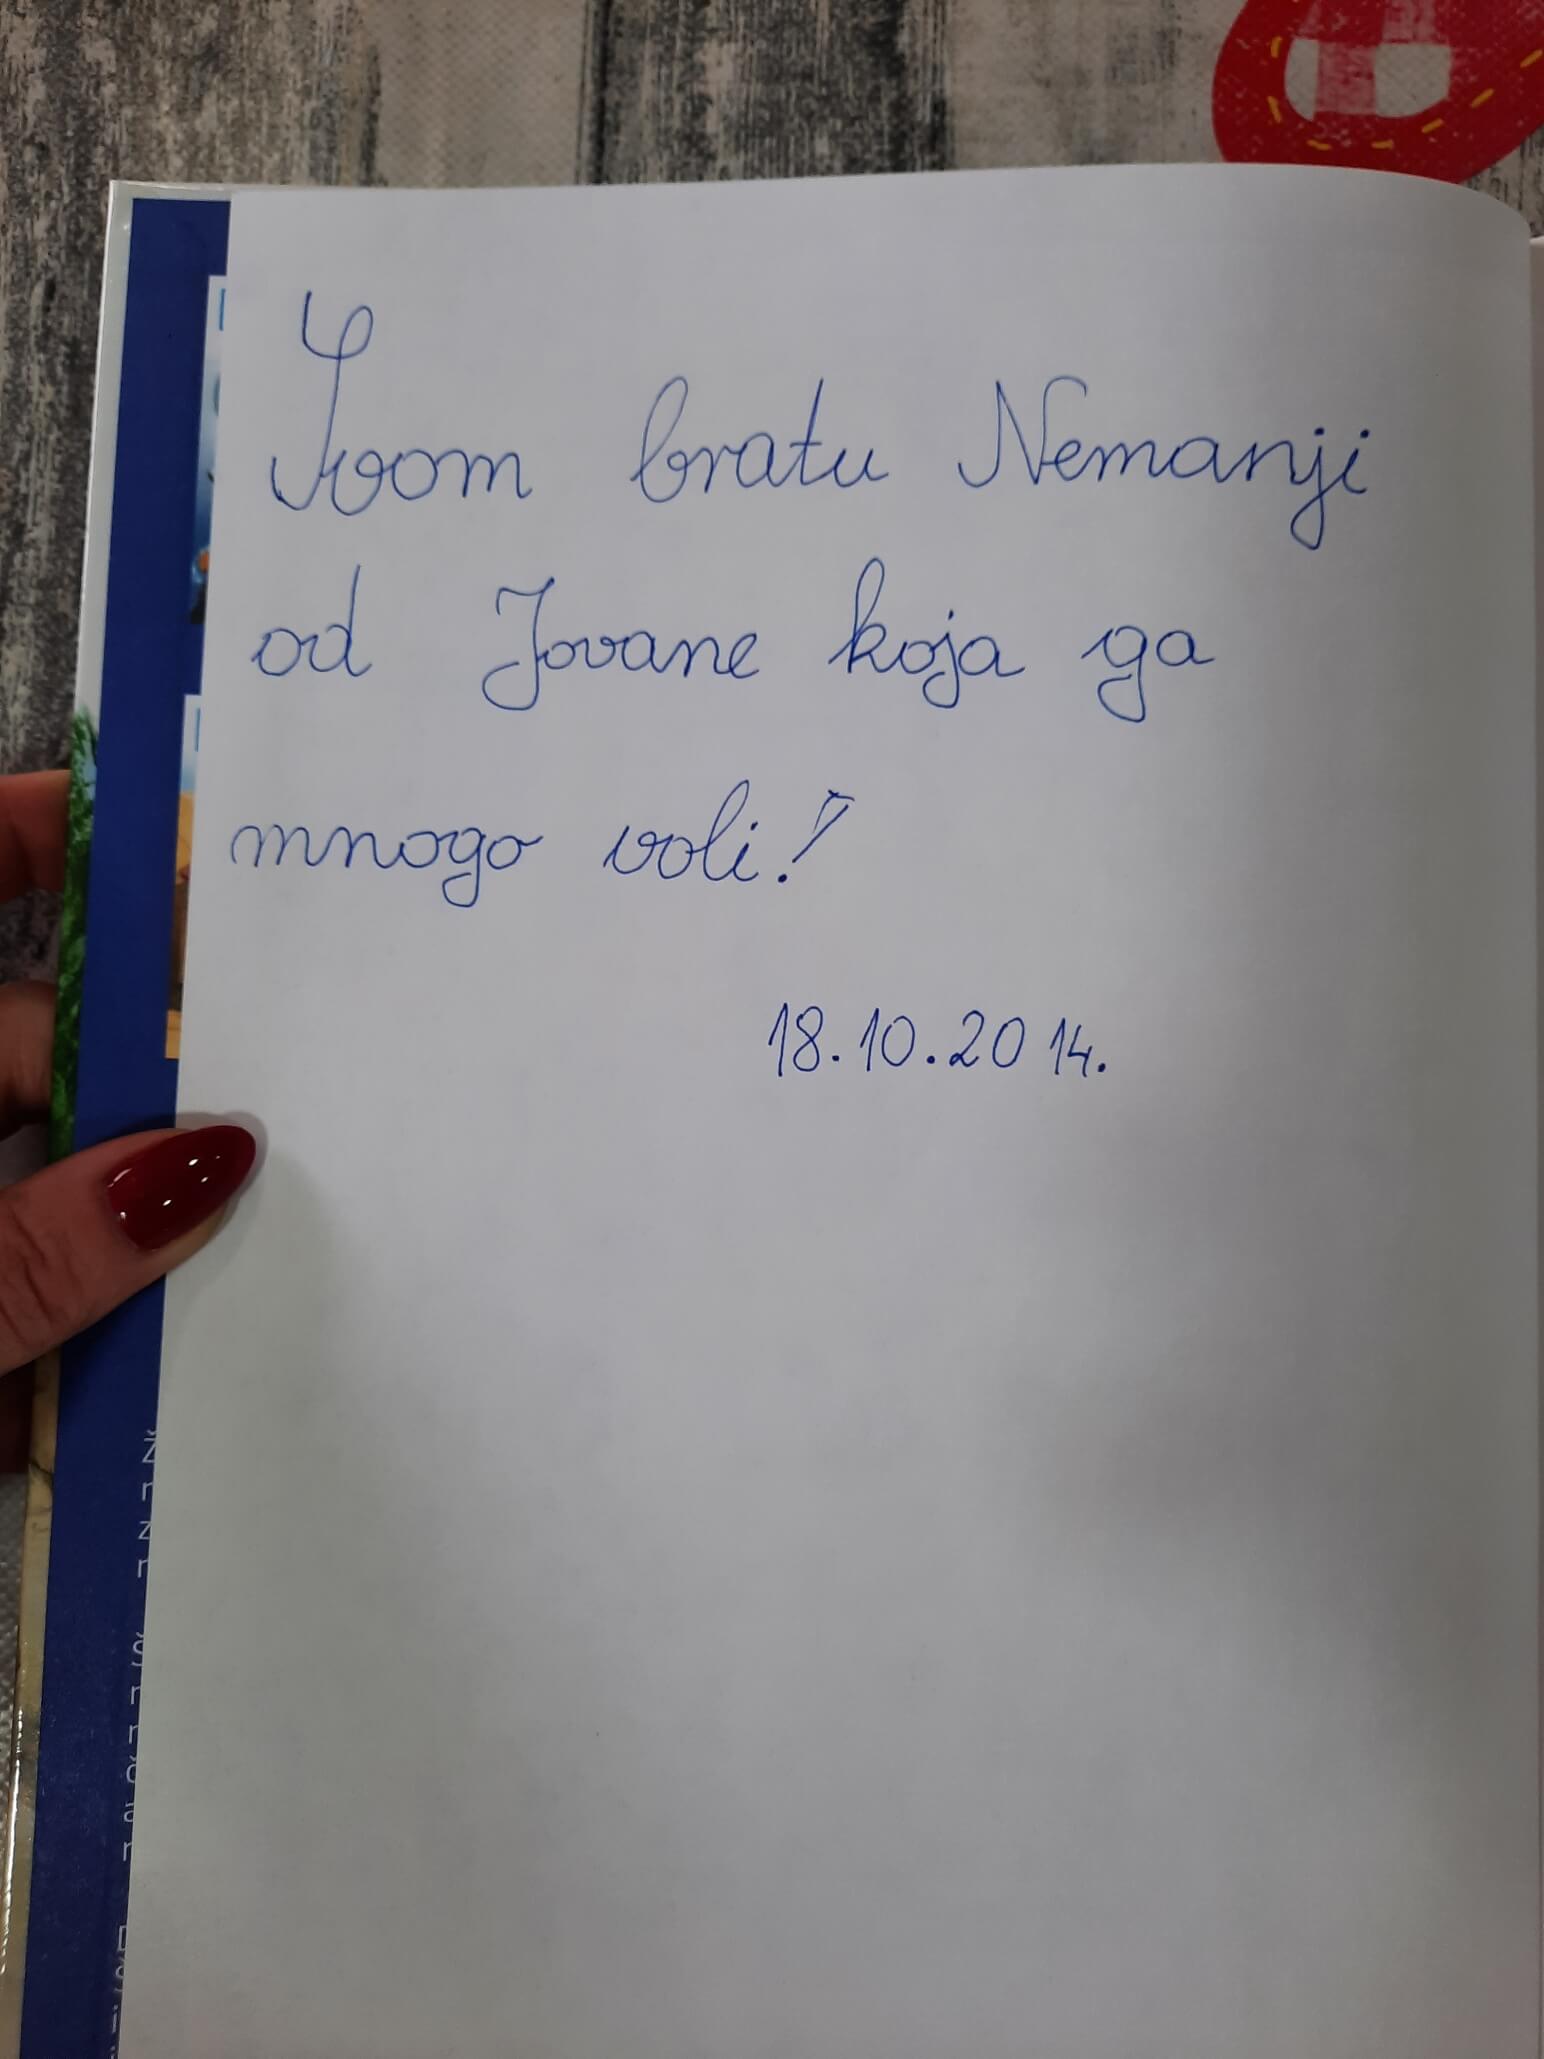 Svom bratu Nemanji
od Jovane koja ga
mnogo voli!
18.10.2014.